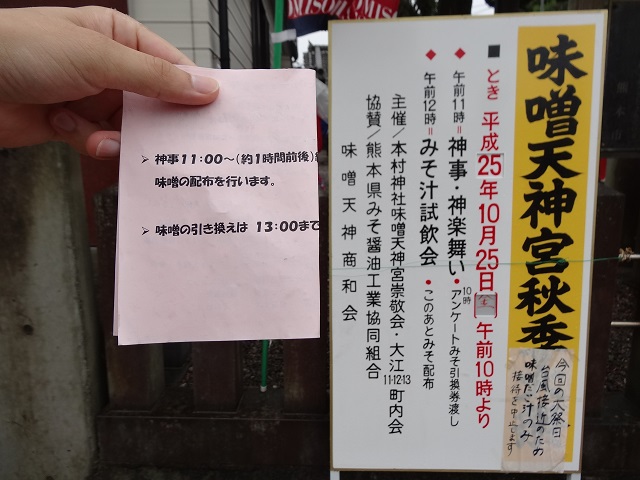 MISO
MISO
➢ 神事11:00~(約1時間前後)
味噌の配布を行います。
➢ 味噌の引き換えは 13:00まで
味噌天神宮秋季
■ とき 平成25年10月25日(金)午前10時より
◆ 午前11時=神事・神楽舞い・アンケートみそ引換券渡し
10時
◆ 午前12時=みそ汁試飲会・このあとみそ配布
主催/本村神社味噌天神宮崇敬会・大江11・12・13町内会
協賛/熊本県みそ醤油工業協同組合
味噌天神商和会
今回の大祭日
台風接近のため
味噌だご汁つみ
接待を中止します